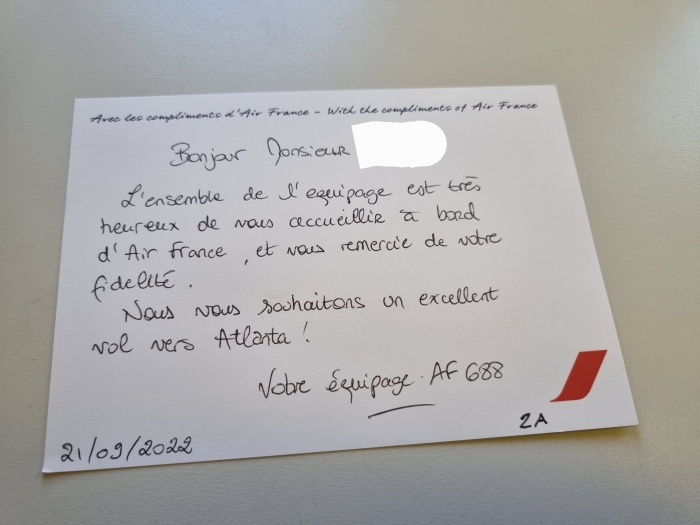 Avec les compliments d'Air France - With the compliments of Air France
Bonjour Monsieur
L'ensemble de l'equipage est très
heureux de vous accueillir à bord
d'Air France, et vous remercie de votre
fidelité.
Nous vous souhaitons un excellent
vol vers Atlanta !
Votre équipage. AF 688
2A
21/09/2022